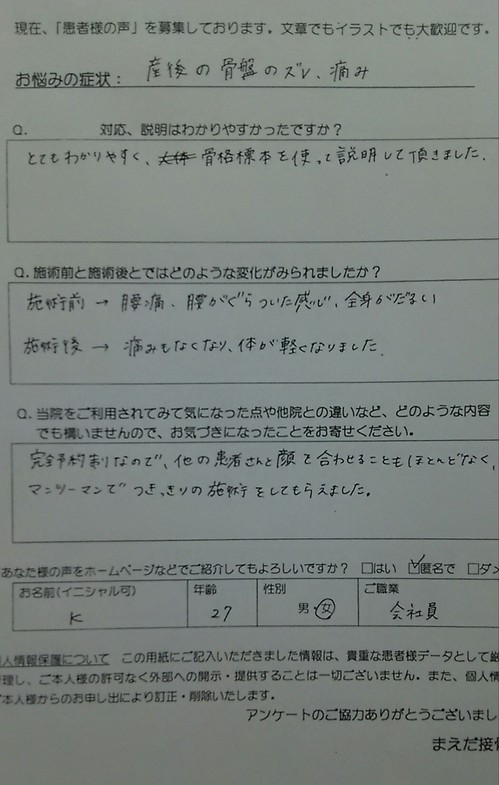 現在、「患者様の声」を募集しております。文章でもイラストでも大歓迎です。
お悩みの症状： 産後の骨盤のズレ、痛み
Q. 対応、説明はわかりやすかったですか？
とてもわかりやすく、骨格標本を使って説明して頂きました。
Q. 施術前と施術後とではどのような変化がみられましたか？
施術前 → 腰痛、腰がぐらついた感じ、全身がだるい
施術後 → 痛みもなくなり、体が軽くなりました。
Q. 当院をご利用されてみて気になった点や他院との違いなど、どのような内容
でも構いませんので、お気づきになったことをお寄せください。
完全予約制なので、他の患者さんと顔で合わせることもほとんどなく、
マンツーマンでつきっきりの施術をしてもらえました。
あなた様の声をホームページなどでご紹介してもよろしいですか？ □はい ☑匿名で □ダメ
お名前(イニシャル可) 年齢 性別 ご職業
K 27 男・女 会社員
人情報保護について この用紙にご記入いただきました情報は、貴重な患者様データとして厳
理し、ご本人様の許可なく外部への開示・提供することは一切ございません。また、個人情
ご本人様からのお申し出により訂正・削除いたします。
アンケートのご協力ありがとうございまし
まえだ接骨